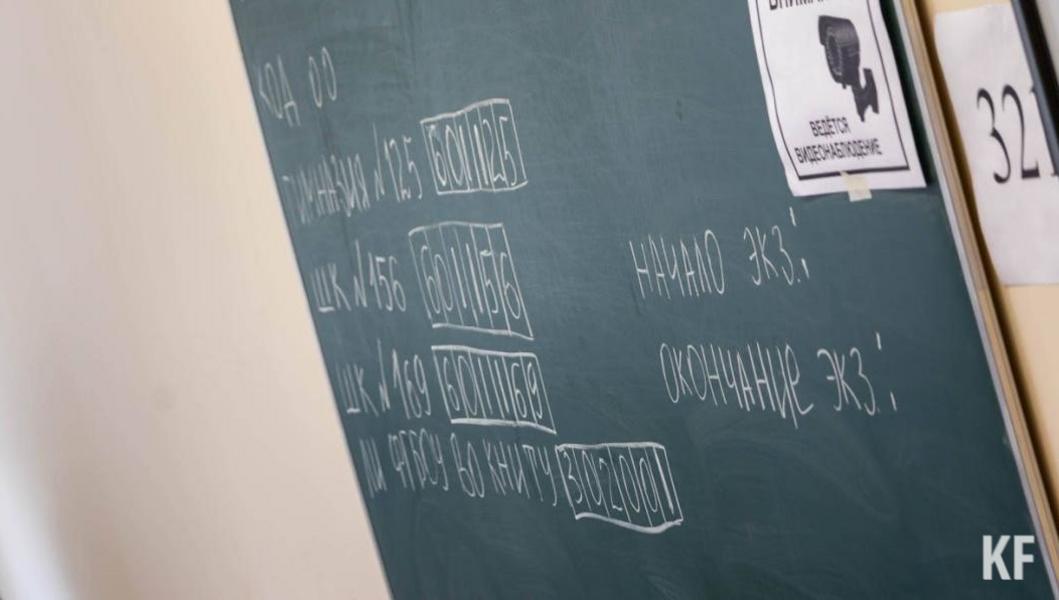 КОД ОО
ГИМНАЗИЯ №125 601125
ШК №156 601156
ШК №169 601169
ЛИ ФГБОУ ВО КНИТУ 30200
НАЧАЛО ЭКЗ.:
ОКОНЧАНИЕ ЭКЗ.:
ВЕДЁТСЯ
ВИДЕОНАБЛЮДЕНИЕ
321
KF